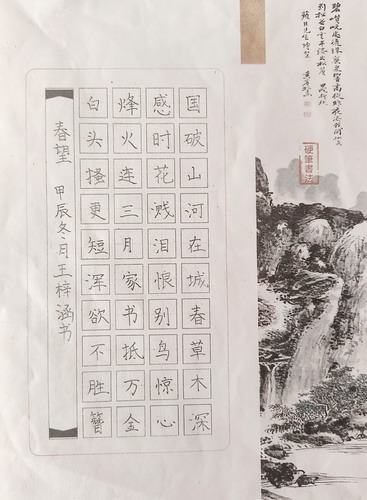 硬笔书法
国破山河在城春草木深
感时花溅泪恨别鸟惊心
烽火连三月家书抵万金
白头搔更短浑欲不胜簪
春望 甲辰冬月王梓涵书